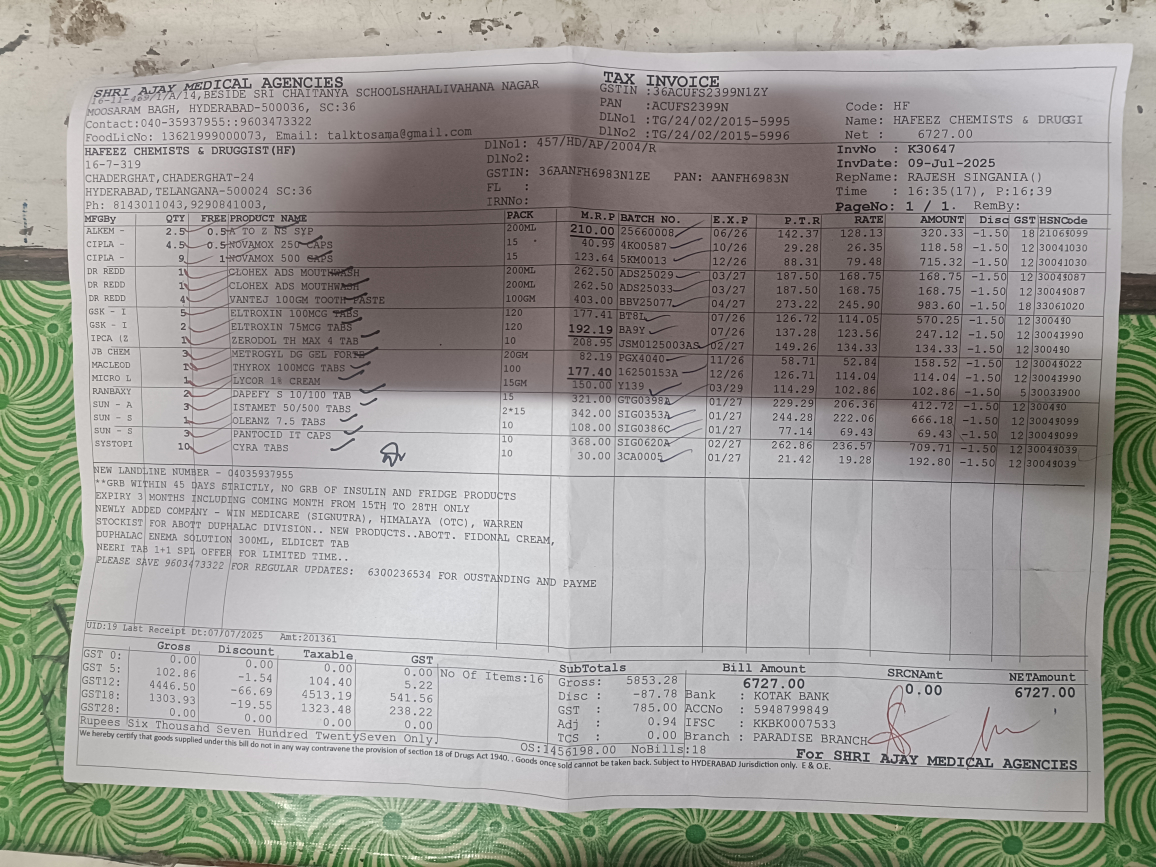 SHRI AJAY MEDICAL AGENCIES
16-11-469/1/A/14,BESIDE SRI CHAITANYA SCHOOLSHAHALIVAHANA NAGAR
MOOSARAM BAGH, HYDERABAD-500036, SC:36
Contact:040-35937955::9603473322
FoodLicNo: 13621999000073, Email: talktosama@gmail.com
TAX INVOICE
GSTIN :36ACUFS2399N1ZY
PAN :ACUFS2399N
DLNo1 :TG/24/02/2015-5995
DlNo2 :TG/24/02/2015-5996
Code: HF
Name: HAFEEZ CHEMISTS & DRUGGI
Net : 6727.00
HAFEEZ CHEMISTS & DRUGGIST(HF)
16-7-319
CHADERGHAT, CHADERGHAT-24
HYDERABAD,TELANGANA-500024 SC:36
Ph: 8143011043,9290841003,
DlNo1: 457/HD/AP/2004/R
DlNo2:
GSTIN: 36AANFH6983N1ZE PAN: AANFH6983N
FL :
IRNNo:
InvNo : K30647
InvDate: 09-Jul-2025
RepName: RAJESH SINGANIA()
Time : 16:35(17), P:16:39
PageNo: 1 / 1. RemBy:
MFGBy QTY FREE PRODUCT NAME PACK M.R.P BATCH NO. E.X.P P.T.R RATE AMOUNT Disc GST HSNCode
ALKEM - 2.5 0.5 A TO Z NS SYP 200ML 210.00 25660008 06/26 142.37 128.13 320.33 -1.50 18 21069099
CIPLA - 4.5 0.5 NOVAMOX 250 CAPS 15 40.99 4KO0587 10/26 29.28 26.35 118.58 -1.50 12 30041030
CIPLA - 9 1 NOVAMOX 500 CAPS 15 123.64 5KM0013 12/26 88.31 79.48 715.32 -1.50 12 30041030
DR REDD 1 CLOHEX ADS MOUTHWASH 200ML 262.50 ADS25029 03/27 187.50 168.75 168.75 -1.50 12 30049087
DR REDD 1 CLOHEX ADS MOUTHWASH 200ML 262.50 ADS25033 03/27 187.50 168.75 168.75 -1.50 12 30049087
DR REDD 4 VANTEJ 100GM TOOTH PASTE 100GM 403.00 BBV25077 04/27 273.22 245.90 983.60 -1.50 18 33061020
GSK - I 5 ELTROXIN 100MCG TABS 120 177.41 BT8L 07/26 126.72 114.05 570.25 -1.50 12 300490
GSK - I 2 ELTROXIN 75MCG TABS 120 192.19 BA9Y 07/26 137.28 123.56 247.12 -1.50 12 30041990
IPCA (Z 1 ZERODOL TH MAX 4 TAB 10 208.95 JSM0125003AS 02/27 149.26 134.33 134.33 -1.50 12 300490
JB CHEM 3 METROGYL DG GEL FORTE 20GM 82.19 PGX4040 11/26 58.71 52.84 158.52 -1.50 12 30049022
MACLEOD 1 THYROX 100MCG TABS 100 177.40 16250153A 12/26 126.71 114.04 114.04 -1.50 12 30043990
MICRO L 1 LYCOR 1% CREAM 15GM 150.00 Y139 03/29 114.29 102.86 102.86 -1.50 5 30033900
RANBAXY 2 DAPEFY S 10/100 TAB 15 321.00 GTG0398A 01/27 229.29 206.36 412.72 -1.50 12 300490
SUN - A 3 ISTAMET 50/500 TABS 2*15 342.00 SIG0353A 01/27 244.28 222.06 666.18 -1.50 12 30049099
SUN - S 1 OLEANZ 7.5 TABS 10 108.00 SIG0386C 01/27 77.14 69.43 69.43 -1.50 12 30049099
SUN - S 3 PANTOCID IT CAPS 10 368.00 SIG0620A 02/27 262.86 236.57 709.71 -1.50 12 30049039
SYSTOPI 10 CYRA TABS 10 30.00 3CA0005 01/27 21.42 19.28 192.80 -1.50 12 30049039
NEW LANDLINE NUMBER - 04035937955
**GRB WITHIN 45 DAYS STRICTLY, NO GRB OF INSULIN AND FRIDGE PRODUCTS
EXPIRY 3 MONTHS INCLUDING COMING MONTH FROM 15TH TO 28TH ONLY
NEWLY ADDED COMPANY - WIN MEDICARE (SIGNUTRA), HIMALAYA (OTC), WARREN
STOCKIST FOR ABOTT DUPHALAC DIVISION.. NEW PRODUCTS..ABOTT. FIDONAL CREAM,
DUPHALAC ENEMA SOLUTION 300ML, ELDICET TAB
NEERI TAB 1+1 SPL OFFER FOR LIMITED TIME..
PLEASE SAVE 9603473322 FOR REGULAR UPDATES: 6300236534 FOR OUSTANDING AND PAYME
UID:19 Last Receipt Dt:07/07/2025 Amt:201361
Gross Discount Taxable GST
GST 0: 0.00 0.00 0.00 0.00
GST 5: 102.86 -1.54 104.40 5.22
GST12: 4446.50 -66.69 4513.19 541.56
GST18: 1303.93 -19.55 1323.48 238.22
GST28: 0.00 0.00 0.00 0.00
No Of Items:16
SubTotals
Gross: 5853.28
Disc : -87.78
GST : 785.00
Adj : 0.94
TCS : 0.00
Bill Amount
6727.00
Bank : KOTAK BANK
ACCNo : 5948799849
IFSC : KKBK0007533
Branch : PARADISE BRANCH
SRCNAmt
0.00
NETAmount
6727.00
Rupees Six Thousand Seven Hundred TwentySeven Only.
OS:1456198.00 NoBills:18
We hereby certify that goods supplied under this bill do not in any way contravene the provision of section 18 of Drugs Act 1940. . Goods once sold cannot be taken back. Subject to HYDERABAD Jurisdiction only. E & O.E.
For SHRI AJAY MEDICAL AGENCIES